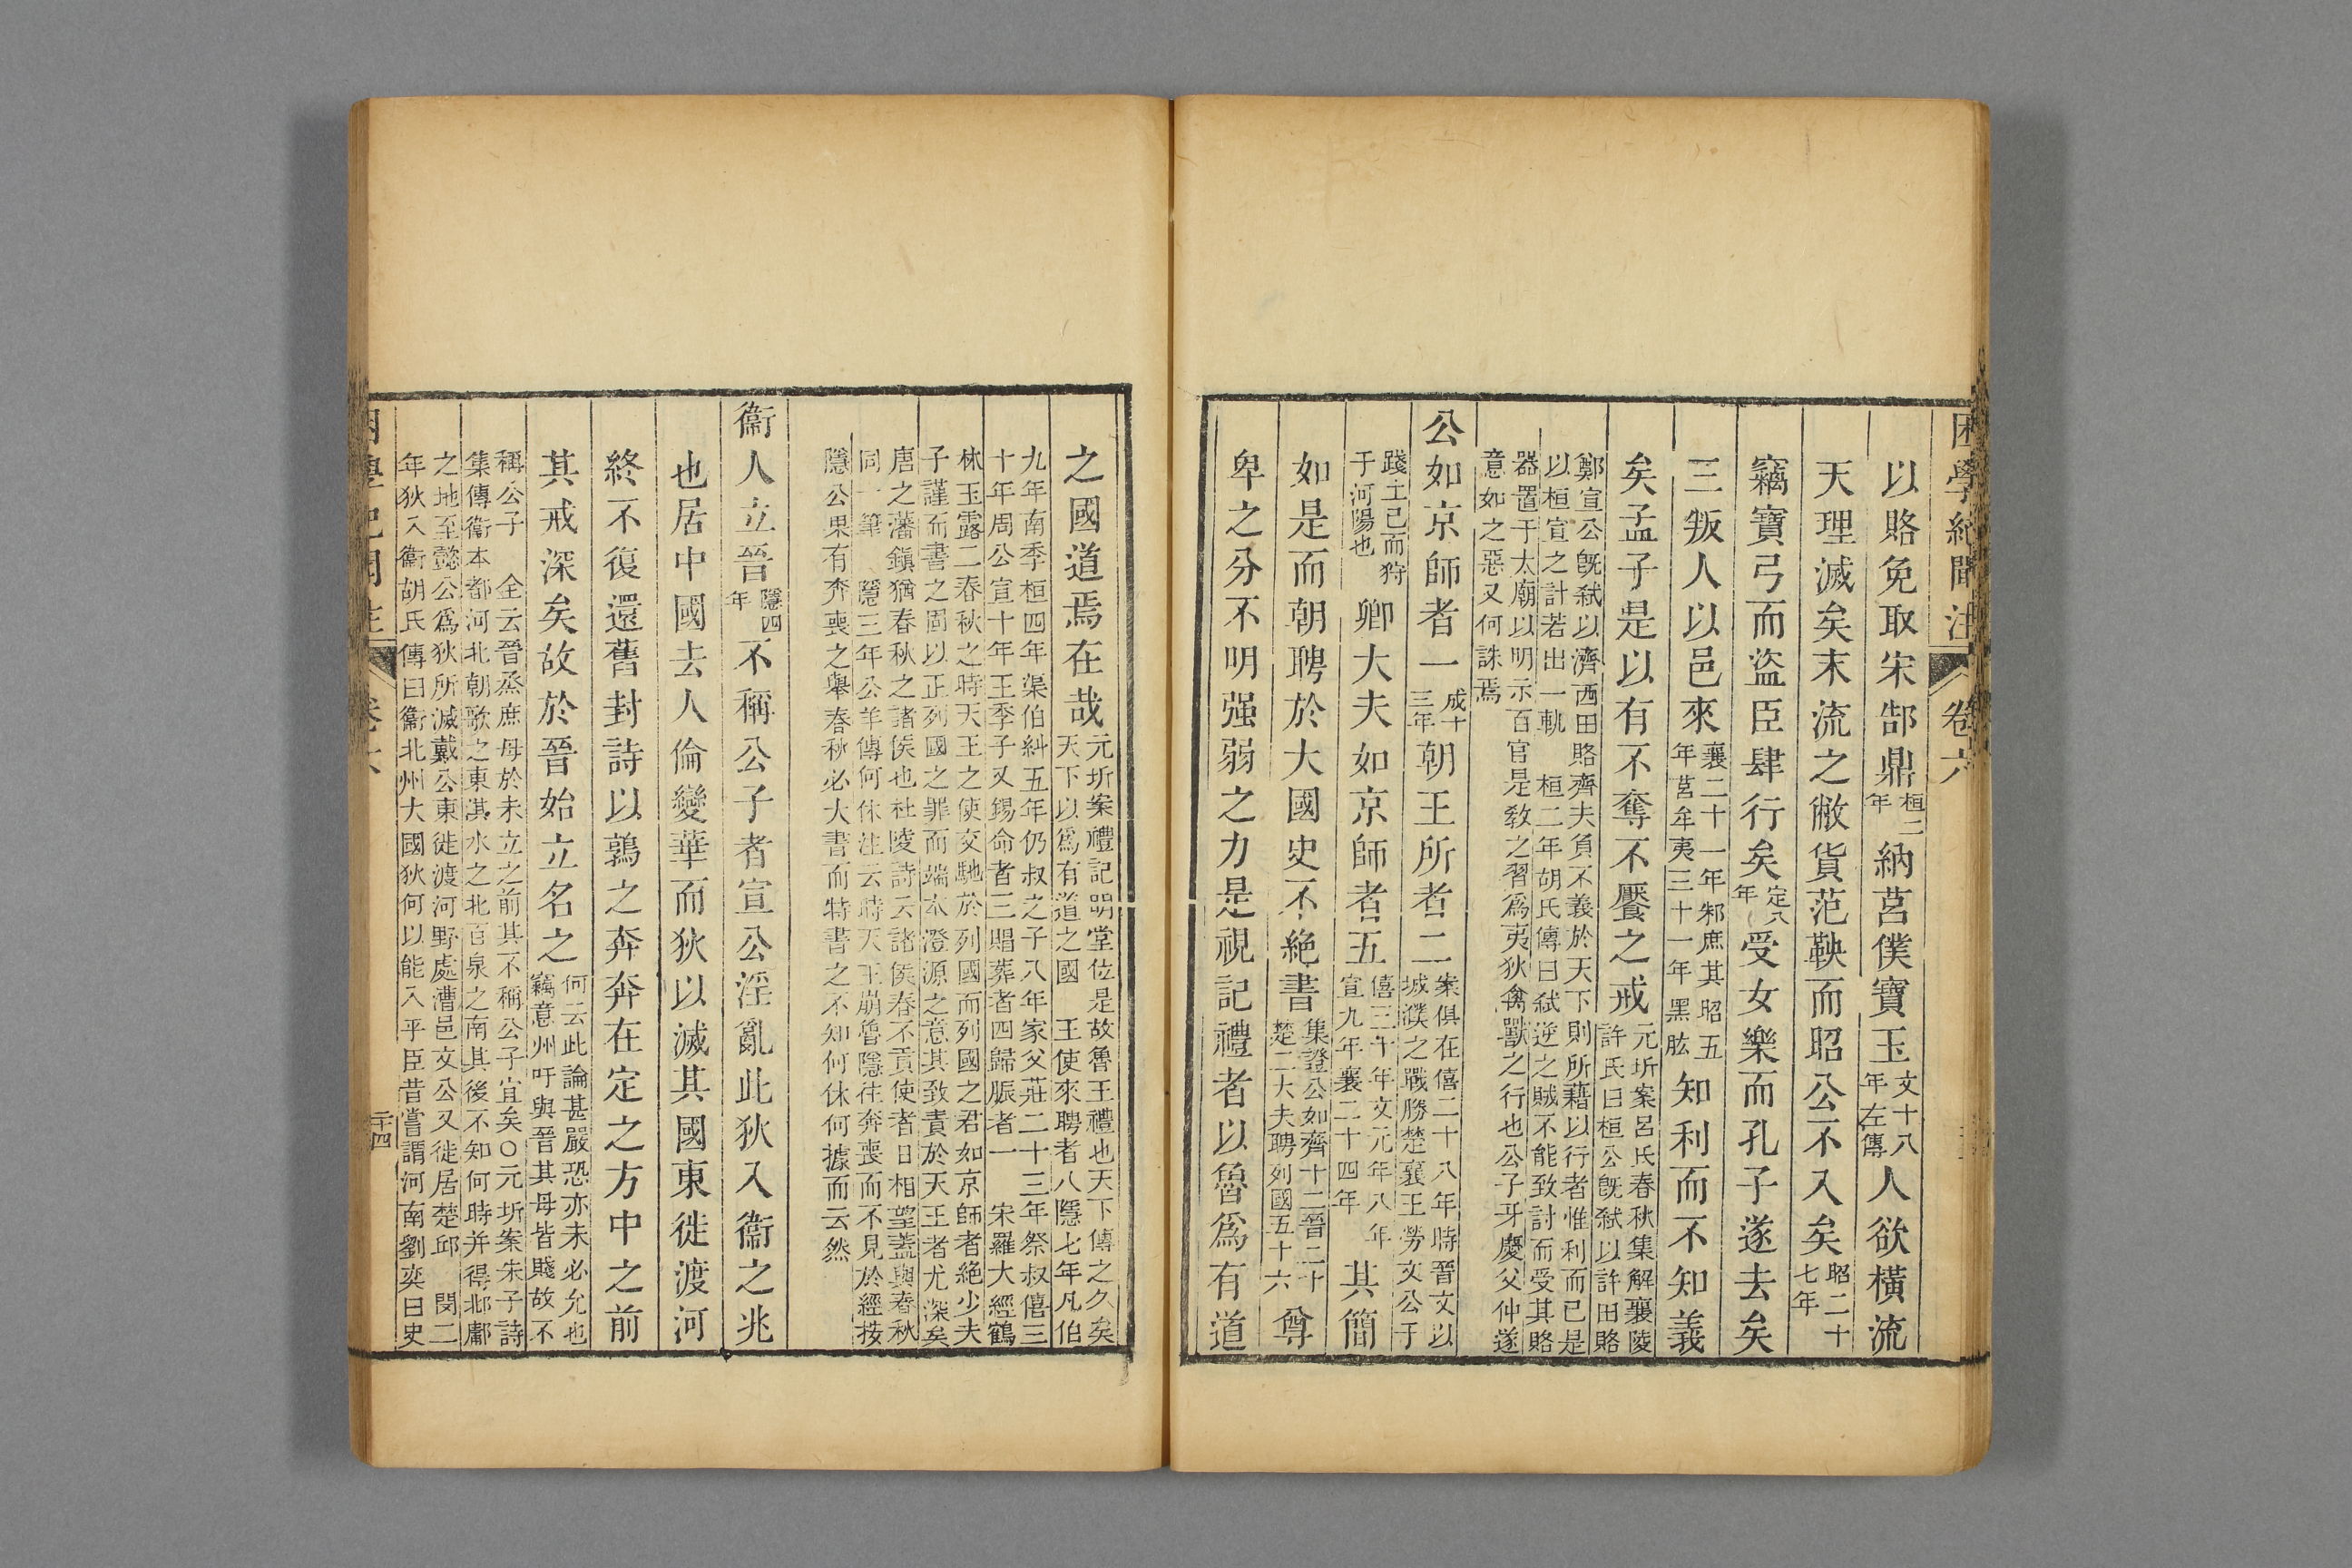 困學紀聞注 卷六
以賂免取宋郜鼎桓二年納莒僕寶玉文十八年左傳人欲橫流
天理滅矣末流之敝貨范鞅而昭公不入矣昭二十七年
竊寶弓而盜臣肆行矣定八年受女樂而孔子遂去矣
三叛人以邑來襄二十一年邾庶其昭五年莒牟夷三十一年黑肱知利而不知義
矣孟子是以有不奪不饜之戒元圻案呂氏春秋集解襄陵許氏曰桓公旣弑以許田賂
鄭宣公旣弑以濟西田賂齊夫負不義於天下則所藉以行者惟利而已是
以桓宣之計若出一軌 桓二年胡氏傳曰弑逆之賊不能致討而受其賂
器置于太廟以明示百官是敎之習爲夷狄禽獸之行也公子牙慶父仲遂
意如之惡又何誅焉
公如京師者一成十三年朝王所者二案俱在僖二十八年時晉文以城濮之戰勝楚襄王勞文公于
踐土已而狩于河陽也卿大夫如京師者五僖三十年文元年八年宣九年襄二十四年其簡
如是而朝聘於大國史不絶書集證公如齊十二晉二十楚二大夫聘列國五十六尊
卑之分不明强弱之力是視記禮者以魯爲有道
之國道焉在哉元圻案禮記明堂位是故魯王禮也天下傳之久矣天下以爲有道之國 王使來聘者八隱七年凡伯
九年南季桓四年渠伯糾五年仍叔之子八年家父莊二十三年祭叔僖三
十年周公宣十年王季子又錫命者三賵葬者四歸脤者一 宋羅大經鶴
林玉露二春秋之時天王之使交馳於列國而列國之君如京師者絶少夫
子謹而書之固以正列國之罪而端本澄源之意其致責於天王者尤深矣
唐之藩鎭猶春秋之諸侯也杜陵詩云諸侯春不貢使者日相望蓋與春秋
同一筆 隱三年公羊傳何休注云時天王崩魯隱往奔喪而不見於經按
隱公果有奔喪之舉春秋必大書而特書之不知何休何據而云然
衞人立晉隱四年不稱公子者宣公淫亂此狄入衞之兆
也居中國去人倫變華而狄以滅其國東徙渡河
終不復還舊封詩以鶉之奔奔在定之方中之前
其戒深矣故於晉始立名之何云此論甚嚴恐亦未必允也竊意州吁與晉其母皆賤故不
稱公子 全云晉烝庶母於未立之前其不稱公子宜矣○元圻案朱子詩
集傳衞本都河北朝歌之東淇水之北百泉之南其後不知何時并得邶鄘
之地至懿公爲狄所滅戴公東徙渡河野處漕邑文公又徙居楚邱 閔二
年狄入衞胡氏傳曰衞北州大國狄何以能入乎臣昔嘗謂河南劉奕曰史
卷六
二十四